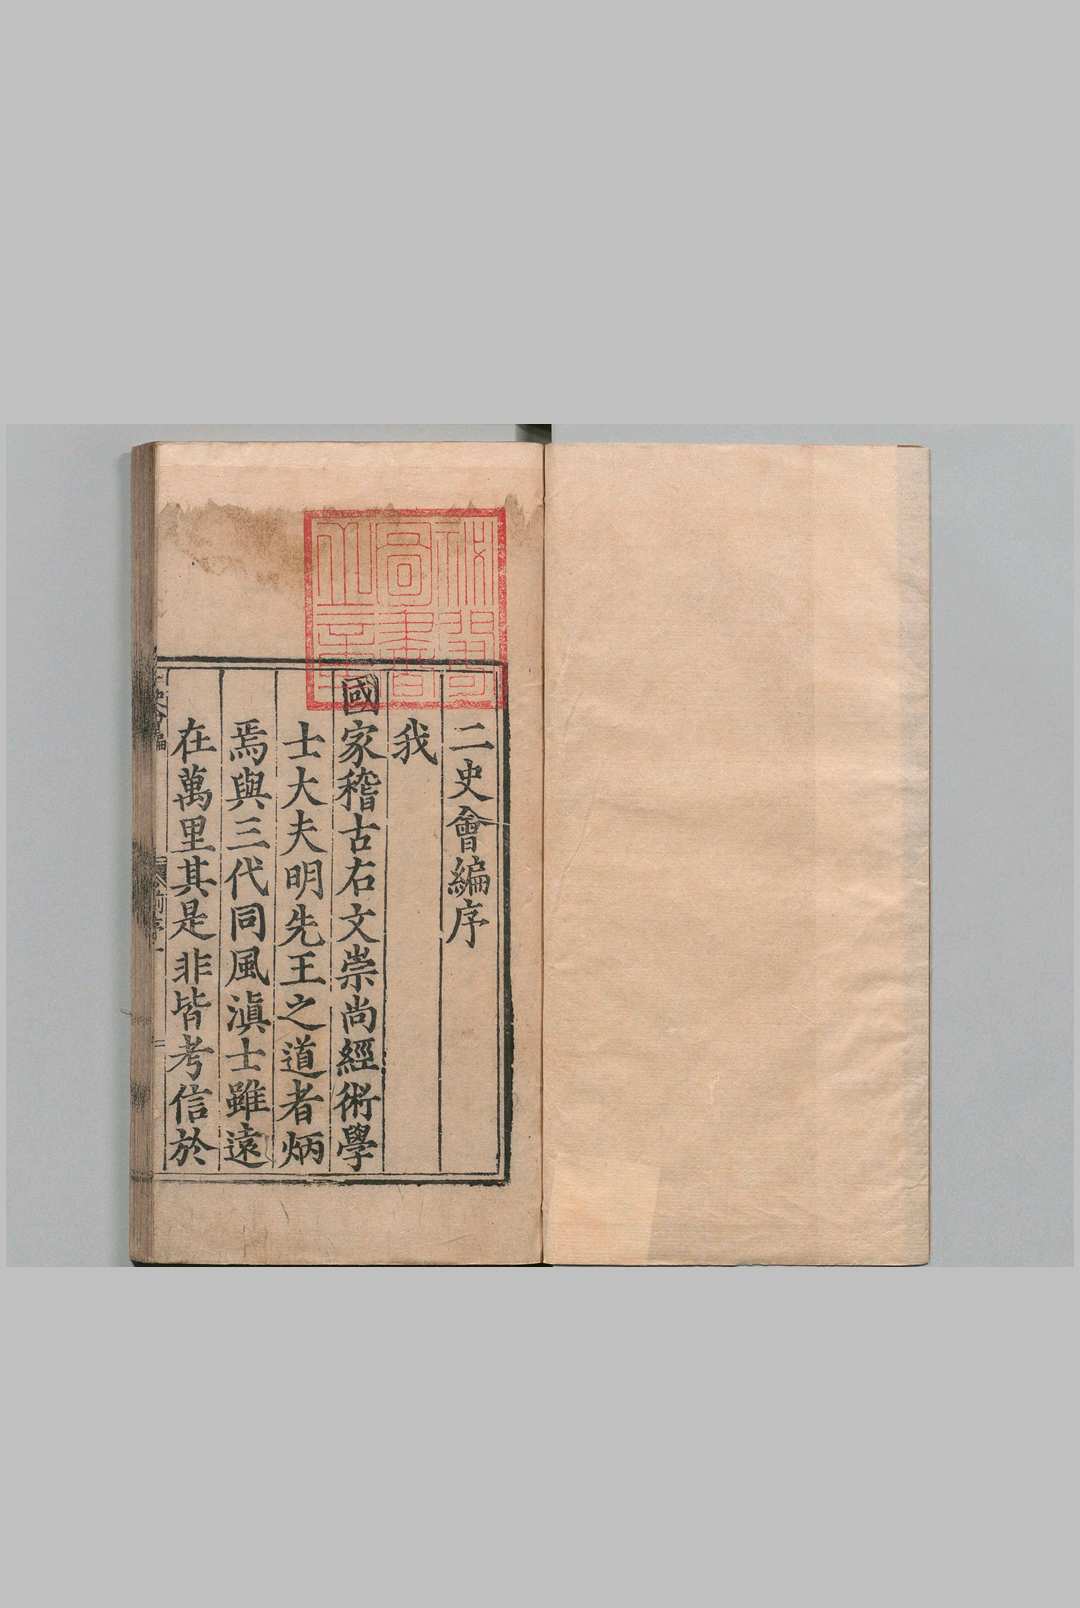 二史會編序
我
國家稽古右文崇尚經術學
士大夫明先王之道者炳
焉與三代同風滇士雖遠
在萬里其是非皆考信於